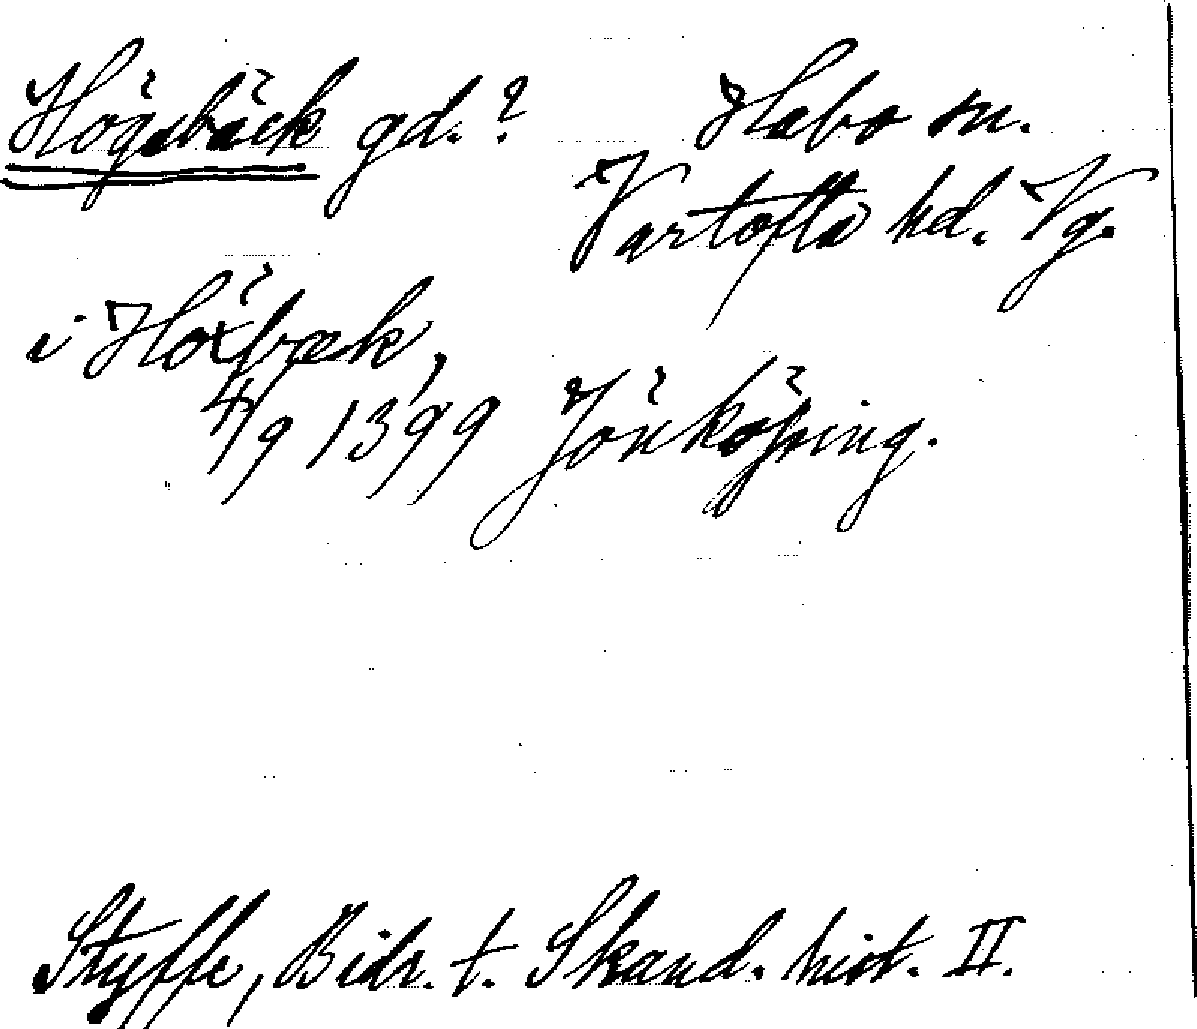 Högsbäck gd.? Habo sn.
Vartofta hd. Vg.
i Höxbæk,
4/9 1399 Jönköping.
Styffe, Bidr. t. Skand. hist. II.